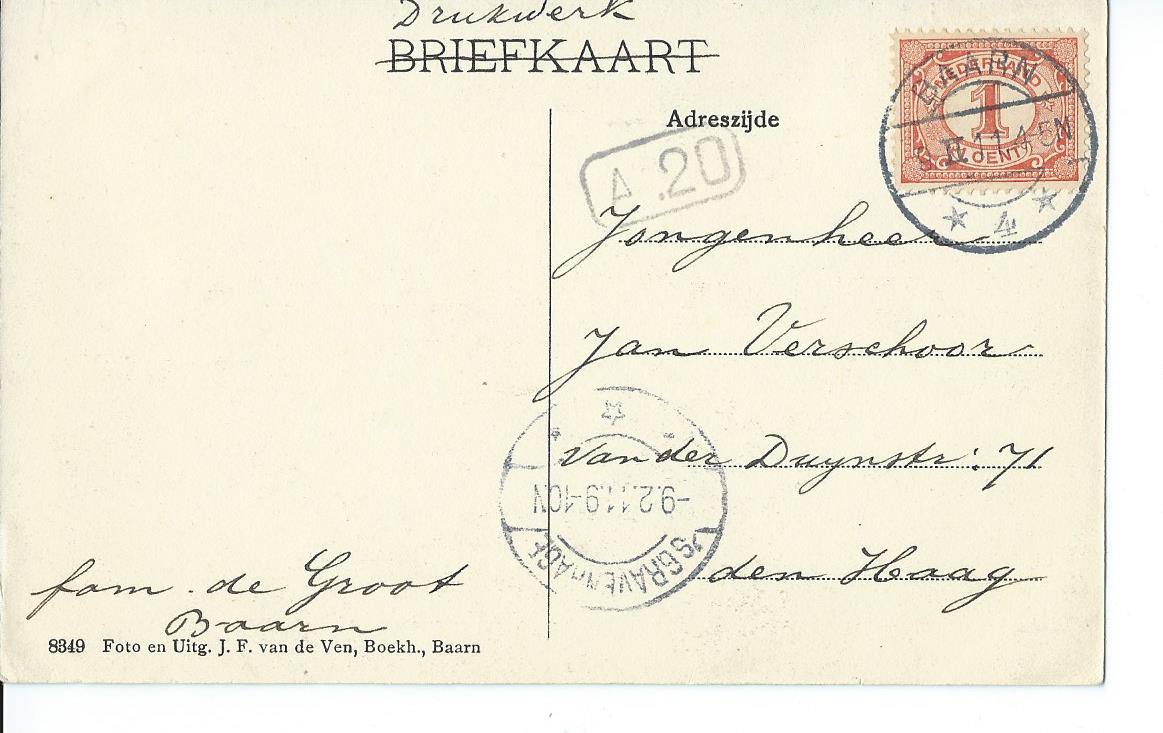 Drukwerk
BRIEFKAART
Adreszijde
NEDERLAND
1
CENT
BAARN
4
A.20
Jongenheer
Jan Verschoor
van der Duynstr: 71
den Haag
-9.2.11.9-10N
'SGRAVENHAGE
fam. de Groot
Baarn
8349 Foto en Uitg. J. F. van de Ven, Boekh., Baarn